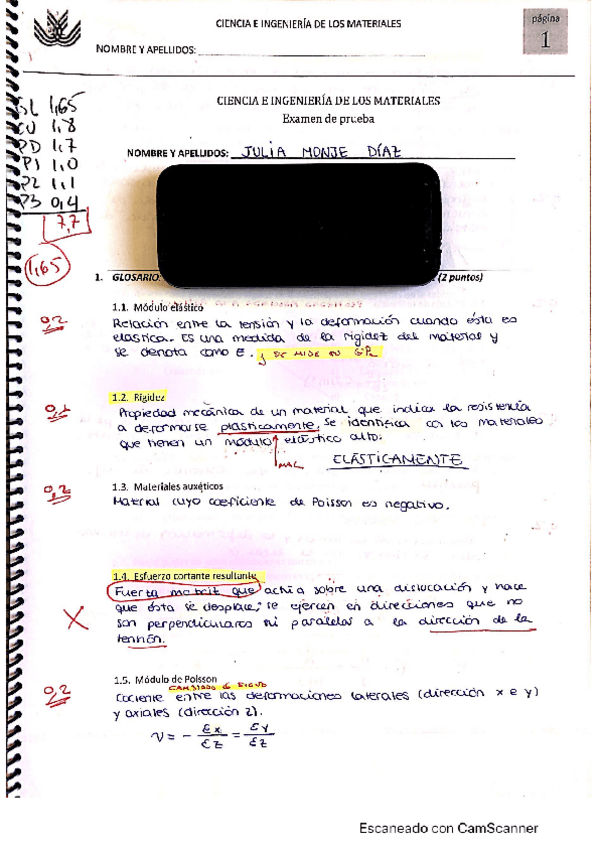 CIENCIA E INGENIERÍA DE LOS MATERIALES
página
1
NOMBRE Y APELLIDOS:
GL 1,65
CU 1,8
PD 1,7
P1 1,0
P2 1,1
P3 0,4
7,7
1,65
CIENCIA E INGENIERÍA DE LOS MATERIALES
Examen de prueba
NOMBRE Y APELLIDOS: JULIA MONJE DÍAZ
1. GLOSARIO: (2 puntos)
1.1. Módulo elástico
0,2
Relación entre la tensión y la deformación cuando ésta es
elástica. Es una medida de la rigidez del material y
se denota como E. y SE MIDE EN GPa
1.2. Rigidez
0,1
Propiedad mecánica de un material que indica la resistencia
a deformarse plásticamente. Se identifica con los materiales
que tienen un módulo elástico alto.
MAL
ELÁSTICAMENTE
1.3. Materiales auxéticos
0,2
Material cuyo coeficiente de Poisson es negativo.
1.4. Esfuerzo cortante resultante
Fuerza motriz que actúa sobre una dislocación y hace
que ésta se desplace; se ejercen en direcciones que no
X
son perpendiculares ni paralelas a la dirección de la
tensión.
1.5. Módulo de Poisson
CAMBIADO de SIGNO
0,2
Cociente entre las deformaciones laterales (dirección x e y)
y axiales (dirección z).
ν = - εx/εz = εy/εz
Escaneado con CamScanner